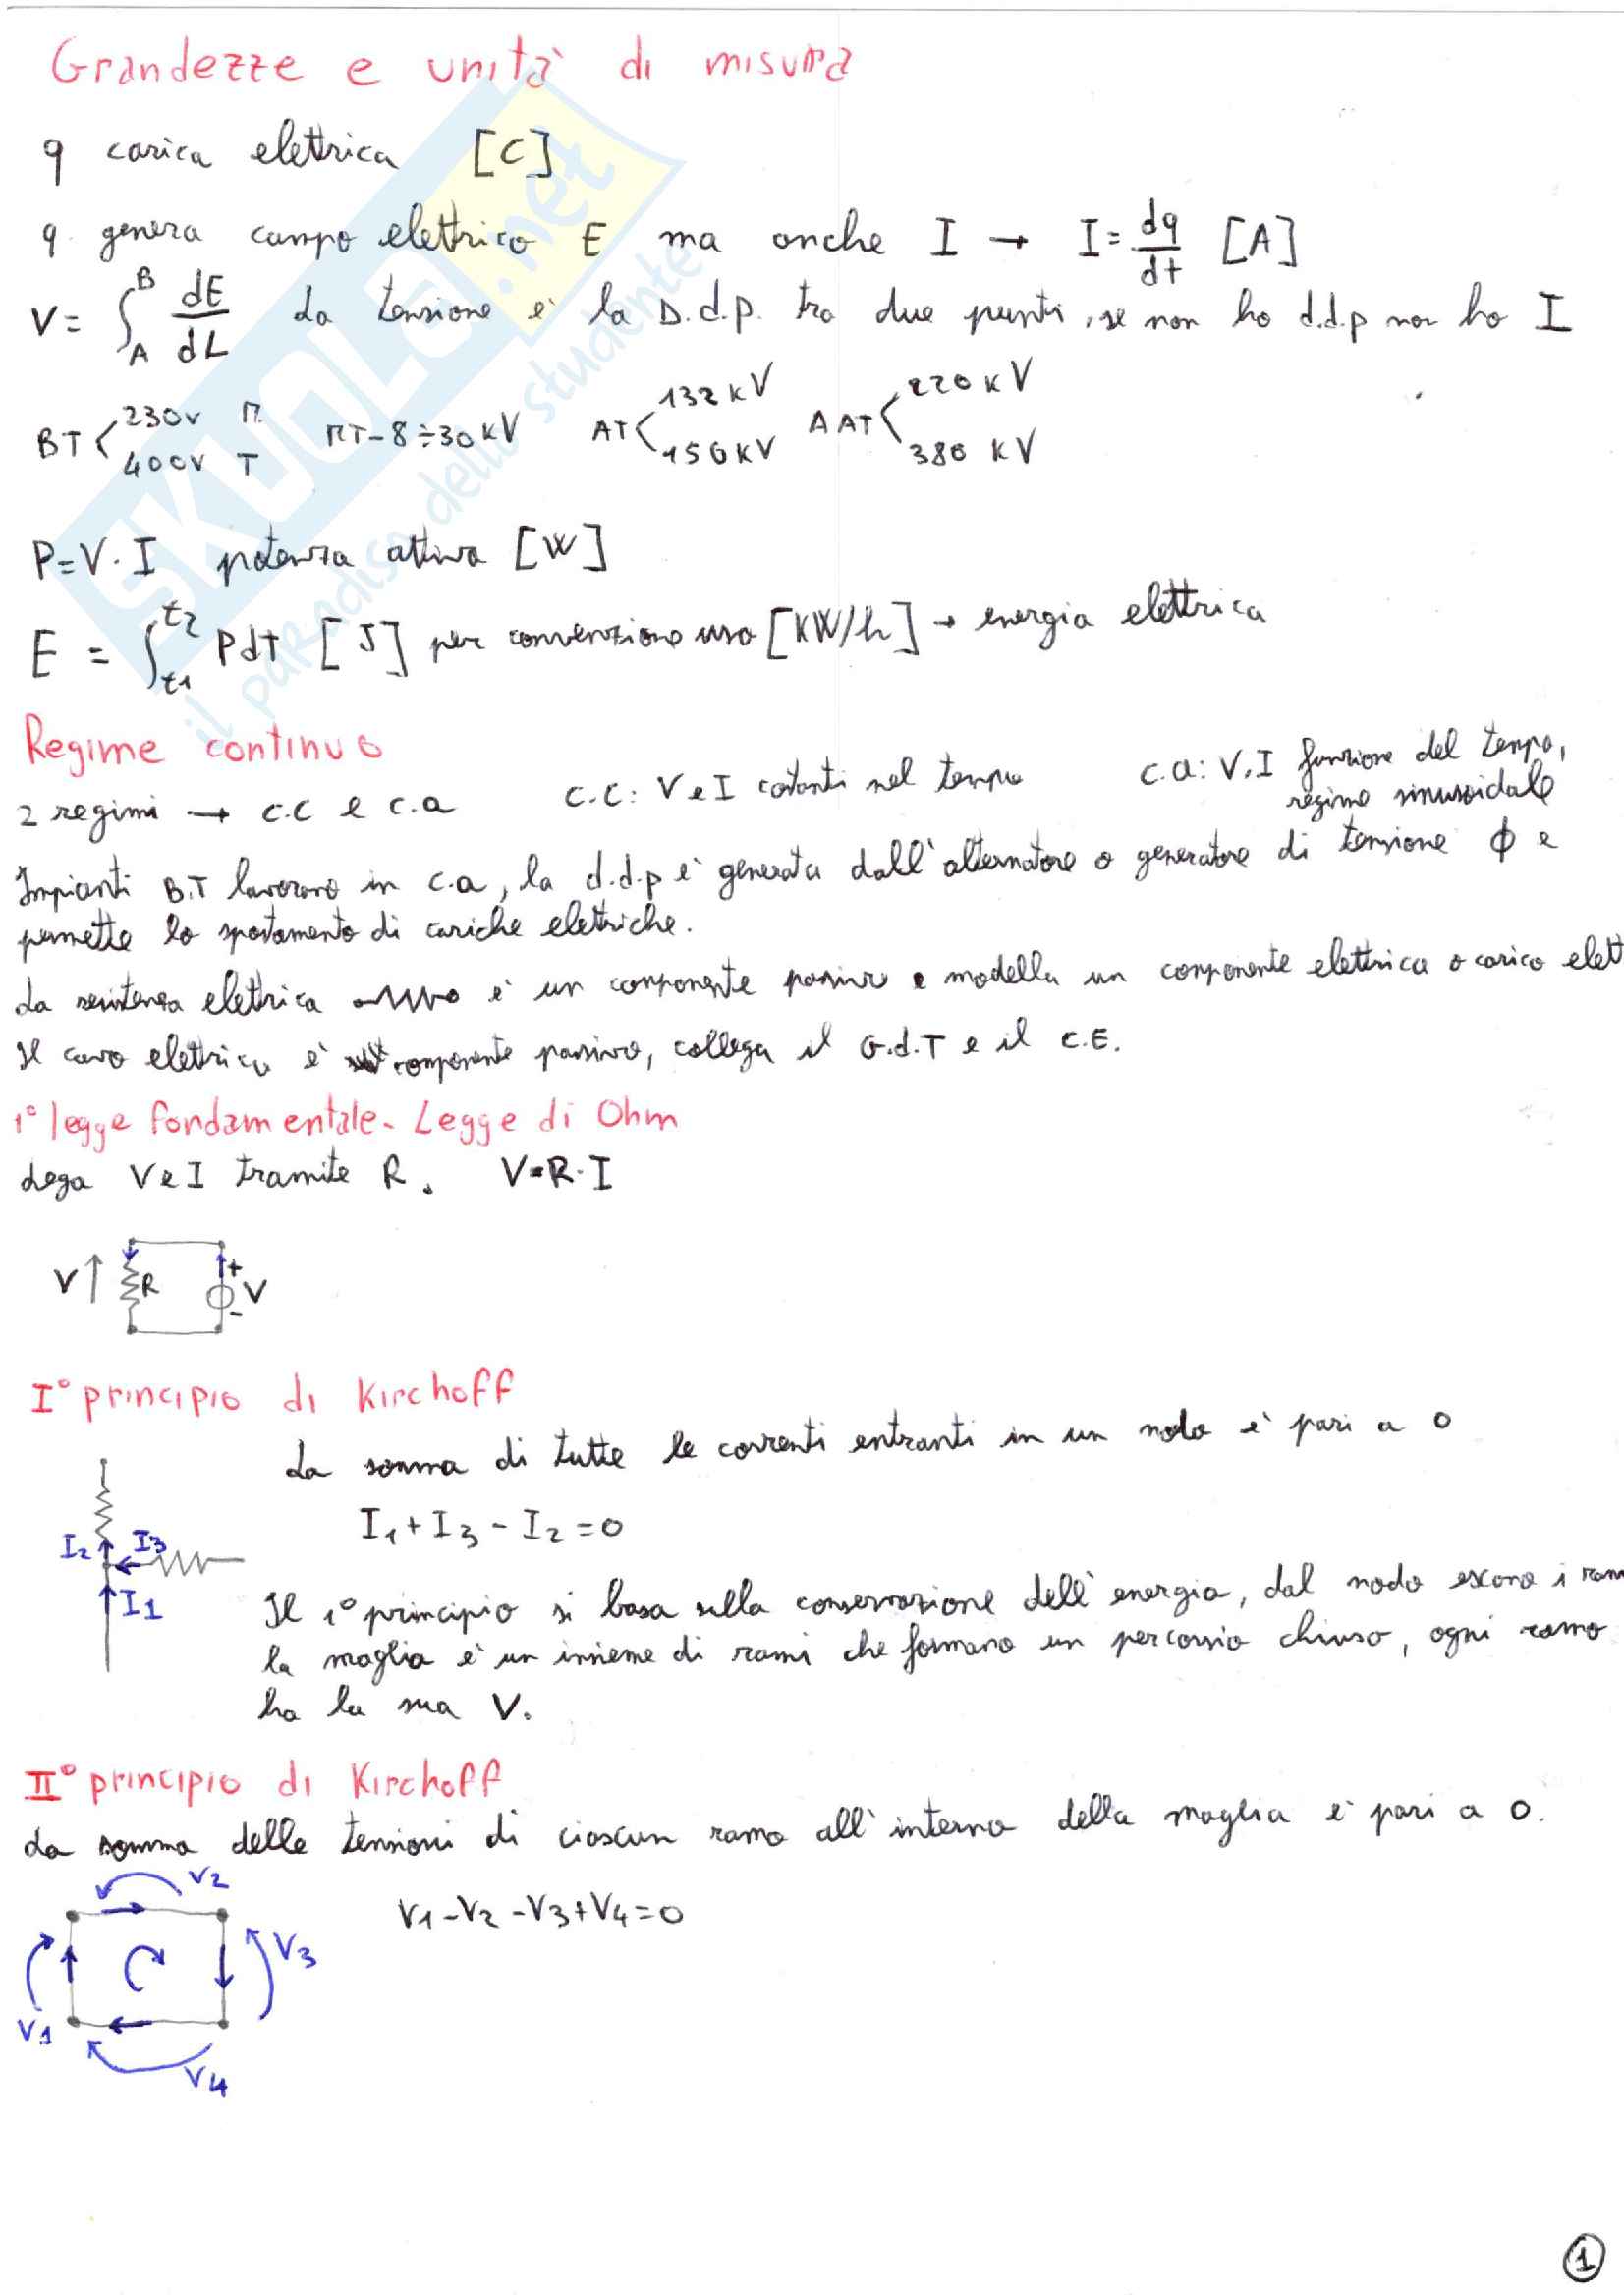 Grandezze e unità di misura
q carica elettrica [C]
q genera campo elettrico E ma anche I → I = dq/dt [A]
V = ∫_A^B dE/dL La tensione è la D.d.p. tra due punti, se non ho d.d.p non ho I
BT < 230V M 400V T MT - 8÷30 kV AT < 132 kV 150 kV AAT < 220 kV 380 kV
P=V·I potenza attiva [W]
E = ∫_t1^t2 P dT [J] per convenzione uso [KW/h] → energia elettrica
Regime continuo
2 regimi → c.c e c.a c.c: V e I costanti nel tempo c.a: V, I funzione del tempo,
regime sinusoidale
Impianti B.T lavorano in c.a, la d.d.p è generata dall'alternatore o generatore di tensione ϕ e
permette lo spostamento di cariche elettriche.
La resistenza elettrica è un componente passivo e modella un componente elettrica o carico elett
Il cavo elettrico è componente passivo, collega il G.d.T e il C.E.
1° legge fondamentale - Legge di Ohm
Lega V e I tramite R. V=R·I
V R + V -
I° principio di Kirchoff
La somma di tutte le correnti entranti in un nodo è pari a 0
I1+I3-I2=0
I2 I3
I1
Il 1° principio si basa sulla conservazione dell'energia, dal nodo escono i ram
la maglia è un insieme di rami che formano un percorso chiuso, ogni ramo
ha la sua V.
II° principio di Kirchoff
La somma delle tensioni di ciascun ramo all'interno della maglia è pari a 0.
V2
V1-V2-V3+V4=0
V3
V1
V4
1
SKUOLA.net
il paradiso dello studente